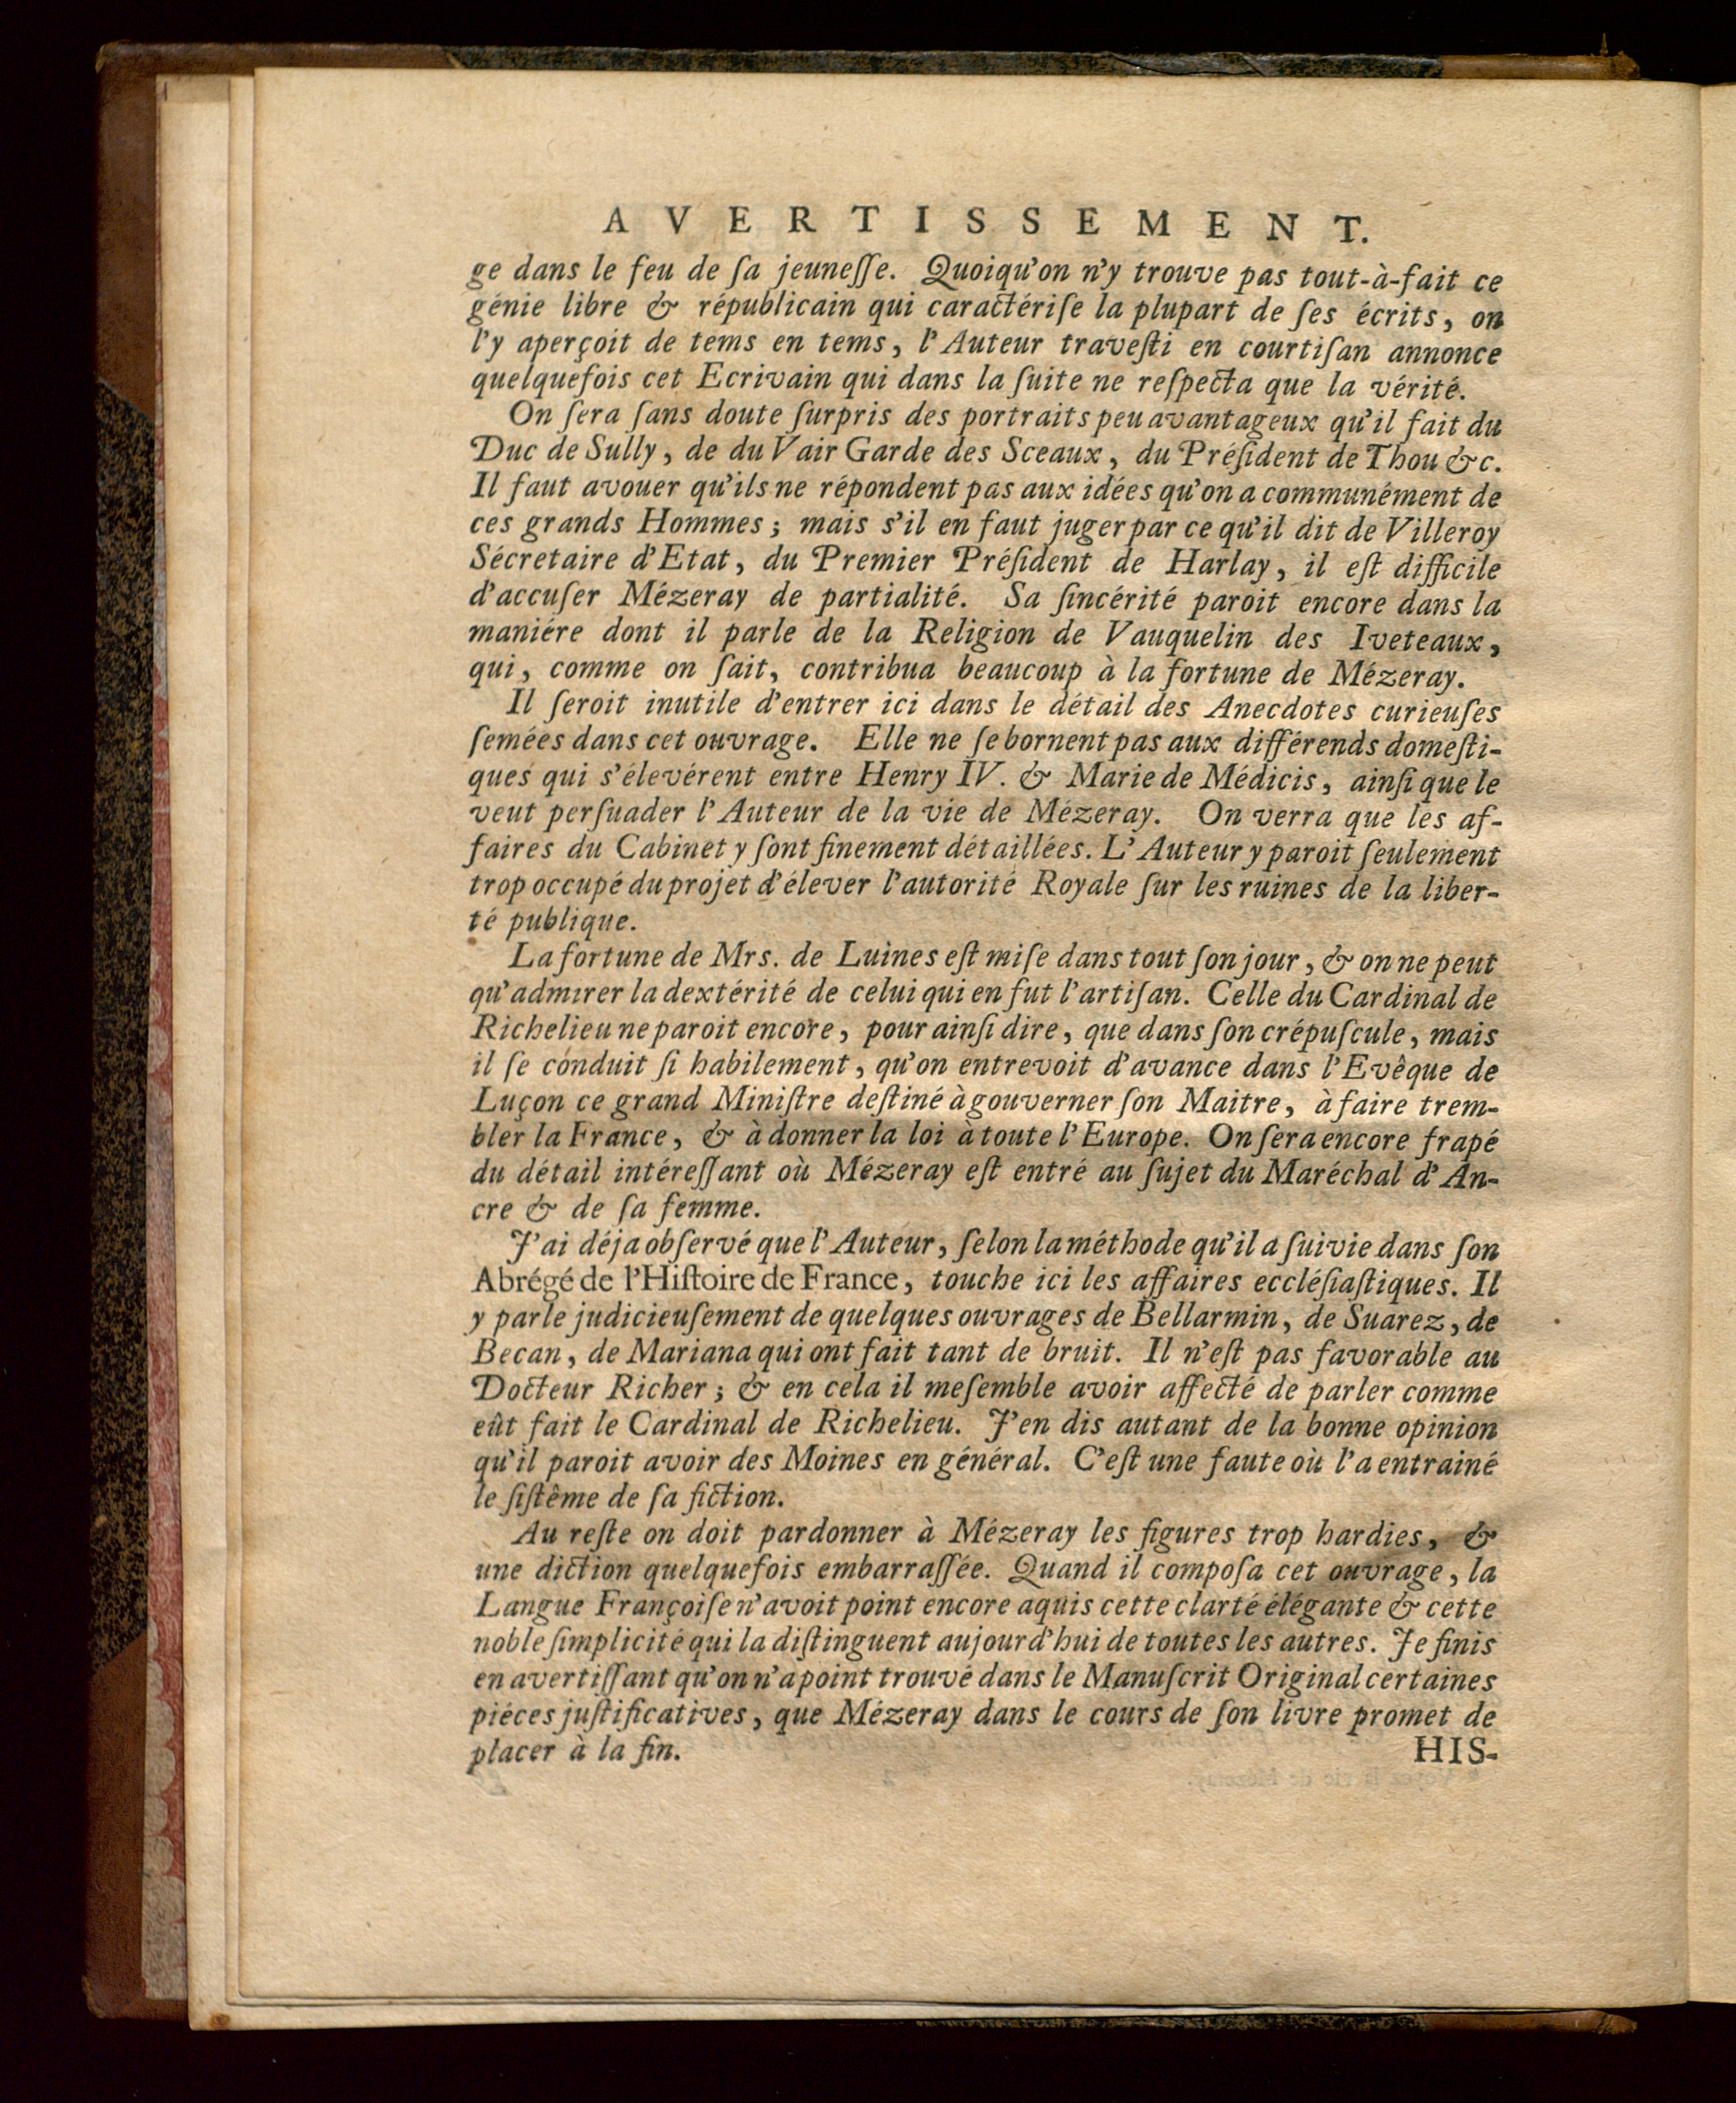 AVERTISSEMENT.
ge dans le feu de ſa jeuneſſe. Quoiqu'on n'y trouve pas tout-à-fait ce
génie libre & républicain qui caractériſe la plupart de ſes écrits, on
l'y aperçoit de tems en tems, l'Auteur traveſti en courtiſan annonce
quelquefois cet Ecrivain qui dans la ſuite ne reſpecta que la vérité.
On ſera ſans doute ſurpris des portraits peu avantageux qu'il fait du
Duc de Sully, de du Vair Garde des Sceaux, du Préſident de Thou &c.
Il faut avouer qu'ils ne répondent pas aux idées qu'on a communément de
ces grands Hommes; mais s'il en faut juger par ce qu'il dit de Villeroy
Sécretaire d'Etat, du Premier Préſident de Harlay, il eſt difficile
d'accuſer Mézeray de partialité. Sa ſincérité paroit encore dans la
maniére dont il parle de la Religion de Vauquelin des Iveteaux,
qui, comme on ſait, contribua beaucoup à la fortune de Mézeray.
Il ſeroit inutile d'entrer ici dans le détail des Anecdotes curieuſes
ſemées dans cet ouvrage. Elle ne ſe bornent pas aux différends domeſti-
ques qui s'élevérent entre Henry IV. & Marie de Médicis, ainſi que le
veut perſuader l'Auteur de la vie de Mézeray. On verra que les af-
faires du Cabinet y ſont finement détaillées. L'Auteur y paroit ſeulement
trop occupé du projet d'élever l'autorité Royale ſur les ruines de la liber-
té publique.
La fortune de Mrs. de Luines eſt miſe dans tout ſon jour, & on ne peut
qu'admirer la dextérité de celui qui en fut l'artiſan. Celle du Cardinal de
Richelieu ne paroit encore, pour ainſi dire, que dans ſon crépuſcule, mais
il ſe conduit ſi habilement, qu'on entrevoit d'avance dans l'Evêque de
Luçon ce grand Miniſtre deſtiné à gouverner ſon Maitre, à faire trem-
bler la France, & à donner la loi à toute l'Europe. On ſera encore frapé
du détail intéreſſant où Mézeray eſt entré au ſujet du Maréchal d'An-
cre & de ſa femme.
J'ai déja obſervé que l'Auteur, ſelon la méthode qu'il a ſuivie dans ſon
Abrégé de l'Hiſtoire de France, touche ici les affaires eccléſiaſtiques. Il
y parle judicieuſement de quelques ouvrages de Bellarmin, de Suarez, de
Becan, de Mariana qui ont fait tant de bruit. Il n'eſt pas favorable au
Docteur Richer; & en cela il me ſemble avoir affecté de parler comme
eût fait le Cardinal de Richelieu. J'en dis autant de la bonne opinion
qu'il paroit avoir des Moines en général. C'eſt une faute où l'a entrainé
le ſiſtême de ſa fiction.
Au reſte on doit pardonner à Mézeray les figures trop hardies, &
une diction quelquefois embarraſſée. Quand il compoſa cet ouvrage, la
Langue Françoiſe n'avoit point encore aquis cette clarté élégante & cette
noble ſimplicité qui la diſtinguent aujourd'hui de toutes les autres. Je finis
en avertiſſant qu'on n'a point trouvé dans le Manuſcrit Original certaines
piéces juſtificatives, que Mézeray dans le cours de ſon livre promet de
placer à la fin.
HIS-